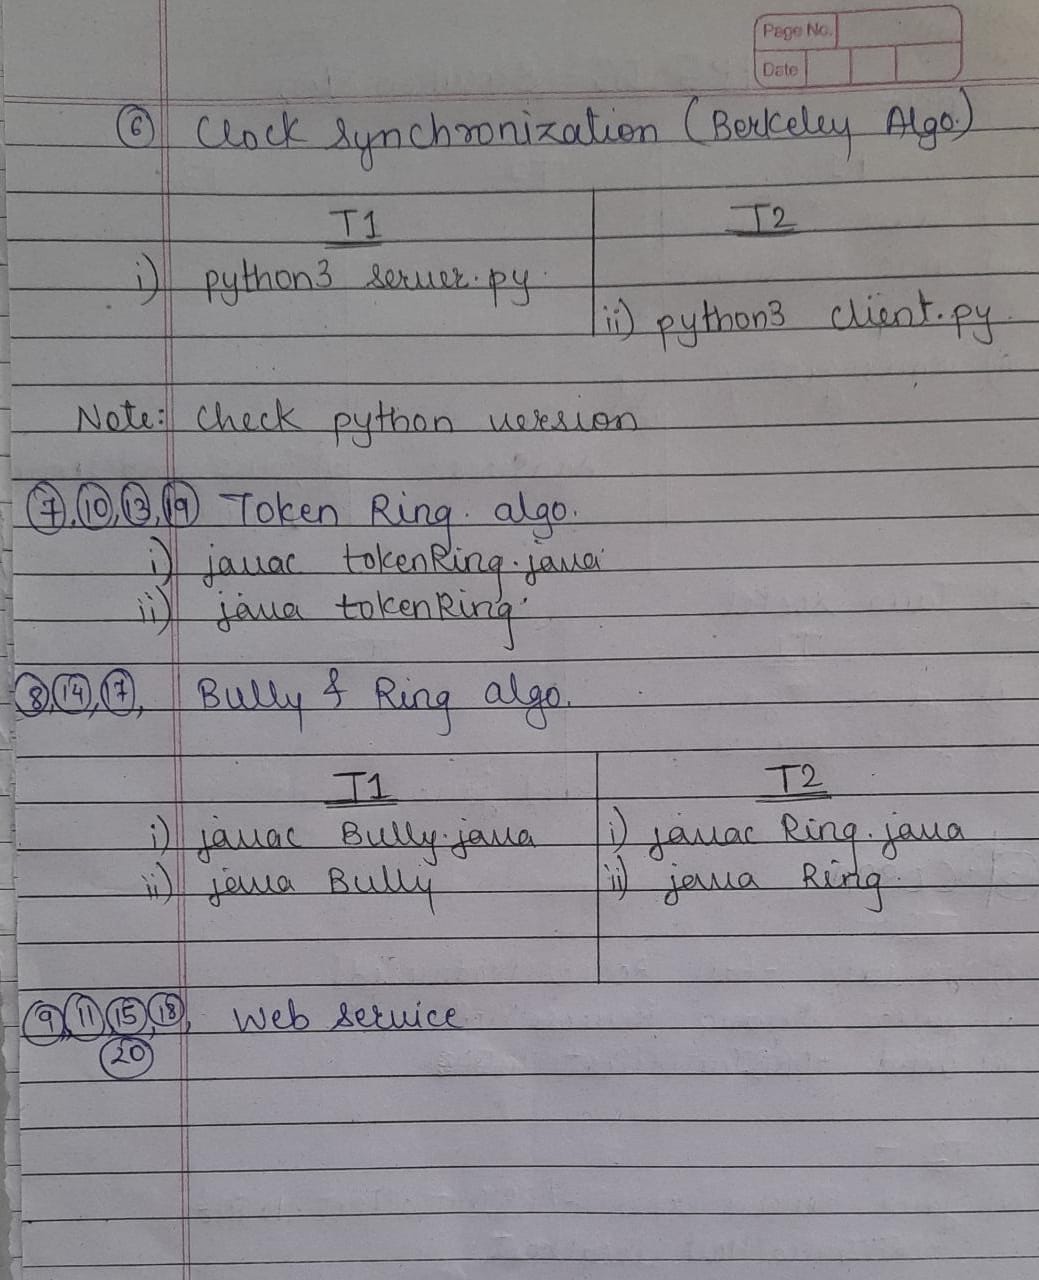 Page No.
Date
⑥ Clock Synchronization (Berkeley Algo.)
T1 T2
i) python3 server.py
ii) python3 client.py
Note: Check python version
⑦,⑩,⑬,⑲ Token Ring algo.
i) javac tokenRing.java
ii) java tokenRing
⑧,⑭,⑰, Bully & Ring algo.
T1 T2
i) javac Bully.java i) javac Ring.java
ii) java Bully ii) java Ring
⑨,⑪,⑮,⑱, Web service
⑳